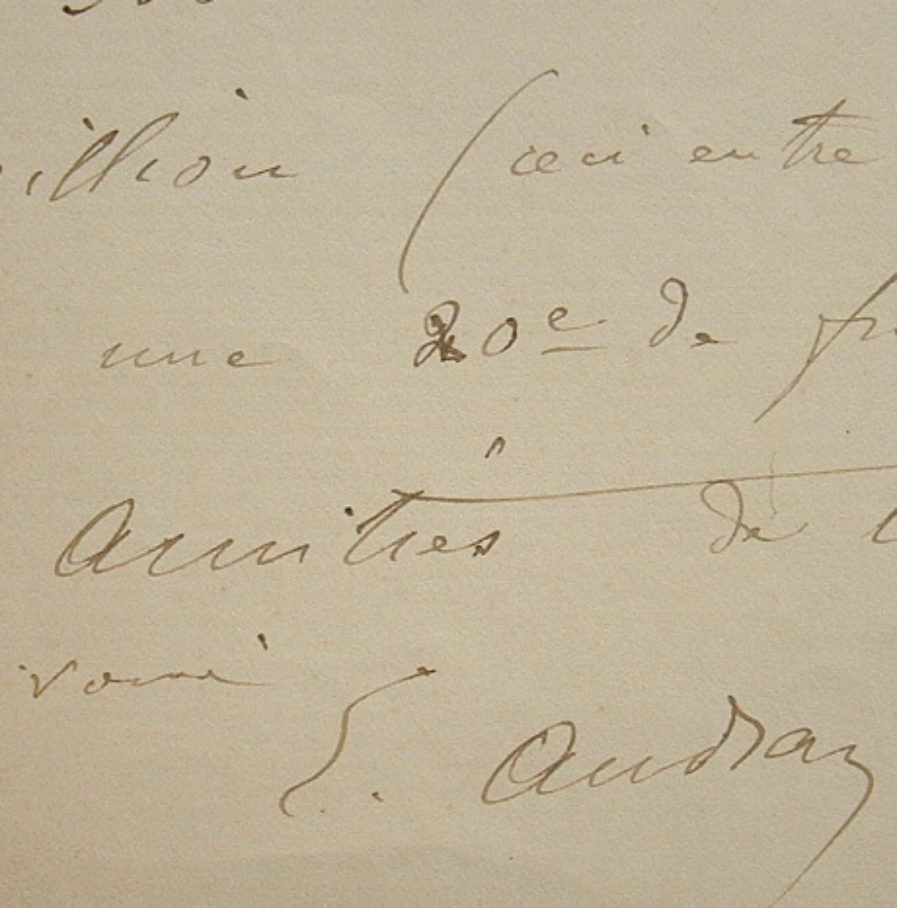 illion (ceci entre
une 20e de fr
Amitiés de
E. Audran